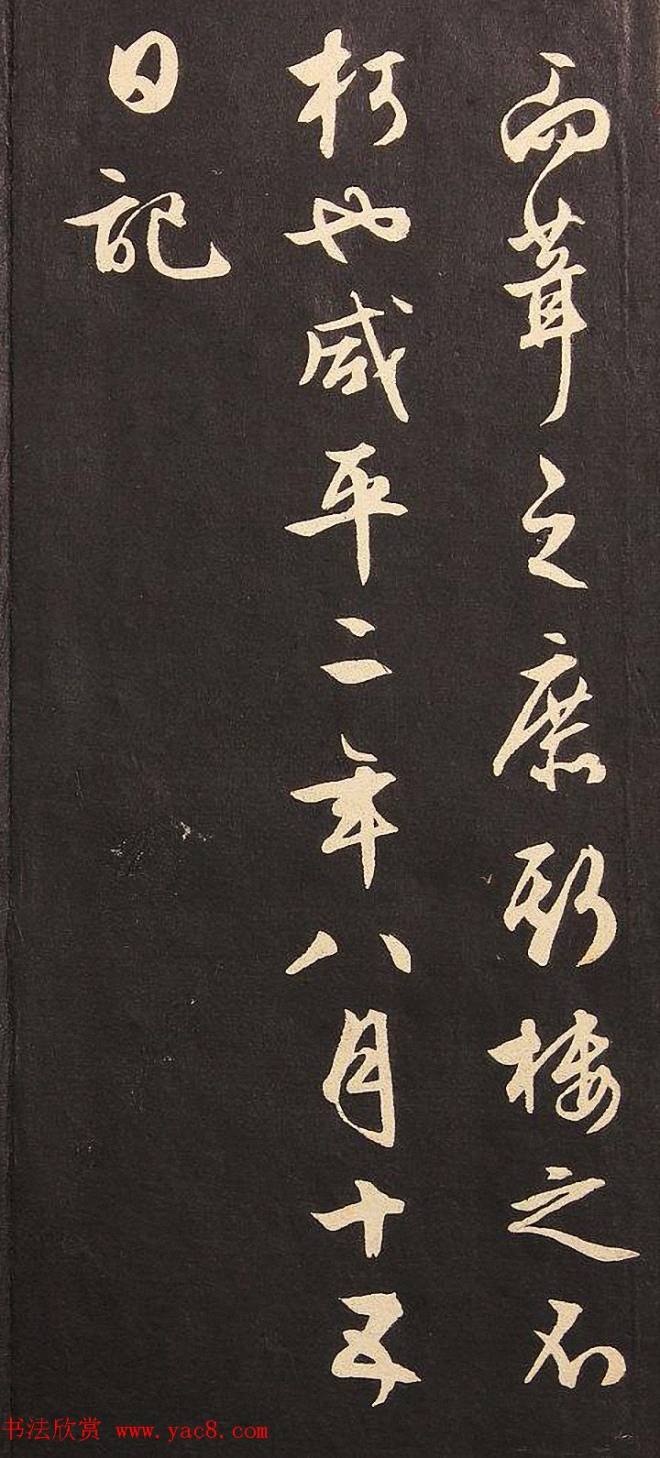 而葺之庶斯樓之不
朽也咸平二年八月十五
日記
书法欣赏 www.yac8.com